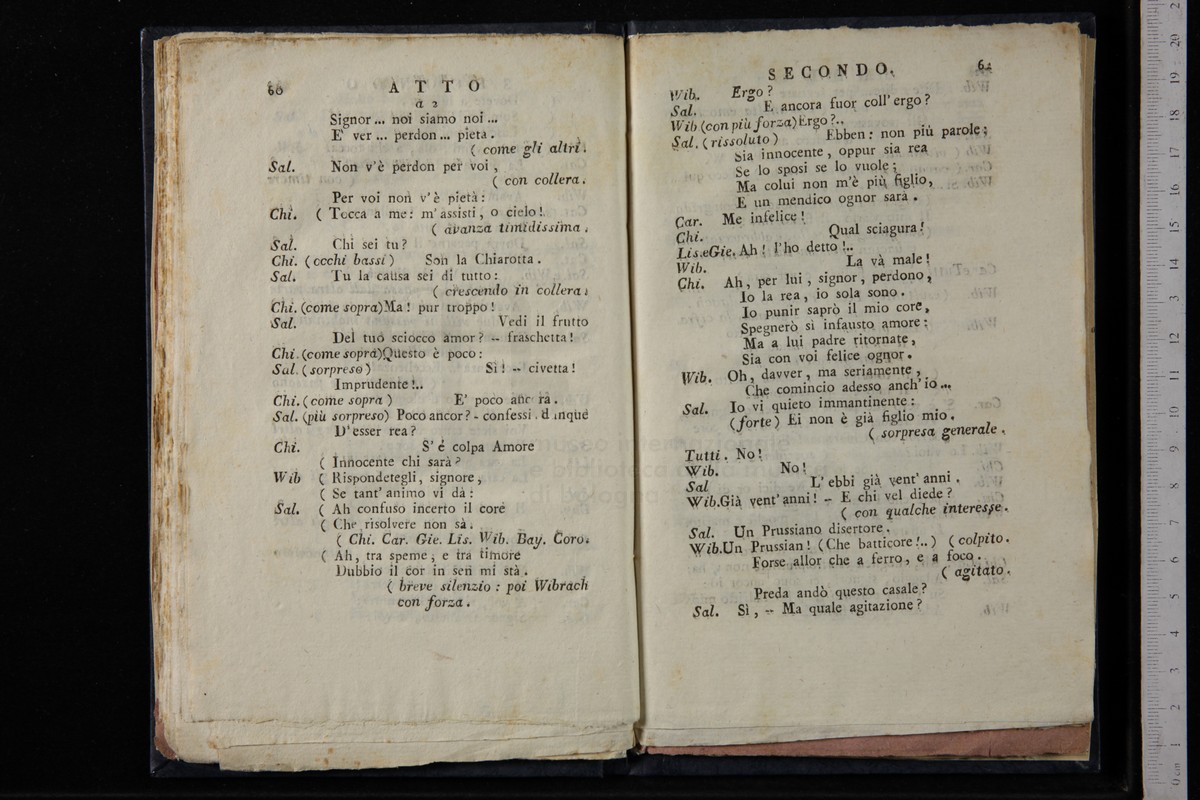 60
ATTO
a 2
Signor ... noi siamo noi ...
E' ver ... perdon ... pietà.
( come gli altri.
Sal. Non v'è perdon per voi,
( con collera.
Per voi non v'è pietà:
Chi. ( Tocca a me: m'assisti, o cielo!
( avanza timidissima.
Sal. Chi sei tu?
Chi. (occhi bassi) Son la Chiarotta.
Sal. Tu la causa sei di tutto:
( crescendo in collera.
Chi. (come sopra) Ma! pur troppo!
Sal. Vedi il frutto
Del tuo sciocco amor? -- fraschetta!
Chi. (come sopra) Questo è poco:
Sal. (sorpreso) Sì! -- civetta!
Imprudente!..
Chi. (come sopra) E' poco anc rà.
Sal. (più sorpreso) Poco ancor? - confessi. d inque
D'esser rea?
Chi. S'é colpa Amore
( Innocente chi sarà?
Wib ( Rispondetegli, signore,
( Se tant' animo vi dà:
Sal. ( Ah confuso incerto il core
( Che risolvere non sà.
( Chi. Car. Gie. Lis. Wib. Bay. Coro.
( Ah, tra speme, e tra timore
Dubbio il cor in sen mi stà.
( breve silenzio: poi Wibrach
con forza.
SECONDO. 61
Wib. Ergo?
Sal. E ancora fuor coll' ergo?
Wib (con più forza) Ergo?..
Sal. (rissoluto) Ebben: non più parole;
Sia innocente, oppur sia rea
Se lo sposi se lo vuole;
Ma colui non m'è più figlio,
E un mendico ognor sarà.
Car. Me infelice!
Chi. Qual sciagura!
Lis.eGie. Ah! l'ho detto!..
Wib. La và male!
Chi. Ah, per lui, signor, perdono,
Io la rea, io sola sono.
Io punir saprò il mio core,
Spegnerò sì infausto amore:
Ma a lui padre ritornate,
Sia con voi felice ognor.
Wib. Oh, davver, ma seriamente,
Che comincio adesso anch' io...
Sal. Io vi quieto immantinente:
(forte) Ei non è già figlio mio.
( sorpresa generale.
Tutti. No!
Wib. No!
Sal L' ebbi già vent' anni.
Wib. Già vent' anni! -- E chi vel diede?
( con qualche interesse.
Sal. Un Prussiano disertore.
Wib. Un Prussian! (Che batticore!..) ( colpito.
Forse allor che a ferro, e a foco.
( agitato.
Preda andò questo casale?
Sal. Sì, -- Ma quale agitazione?